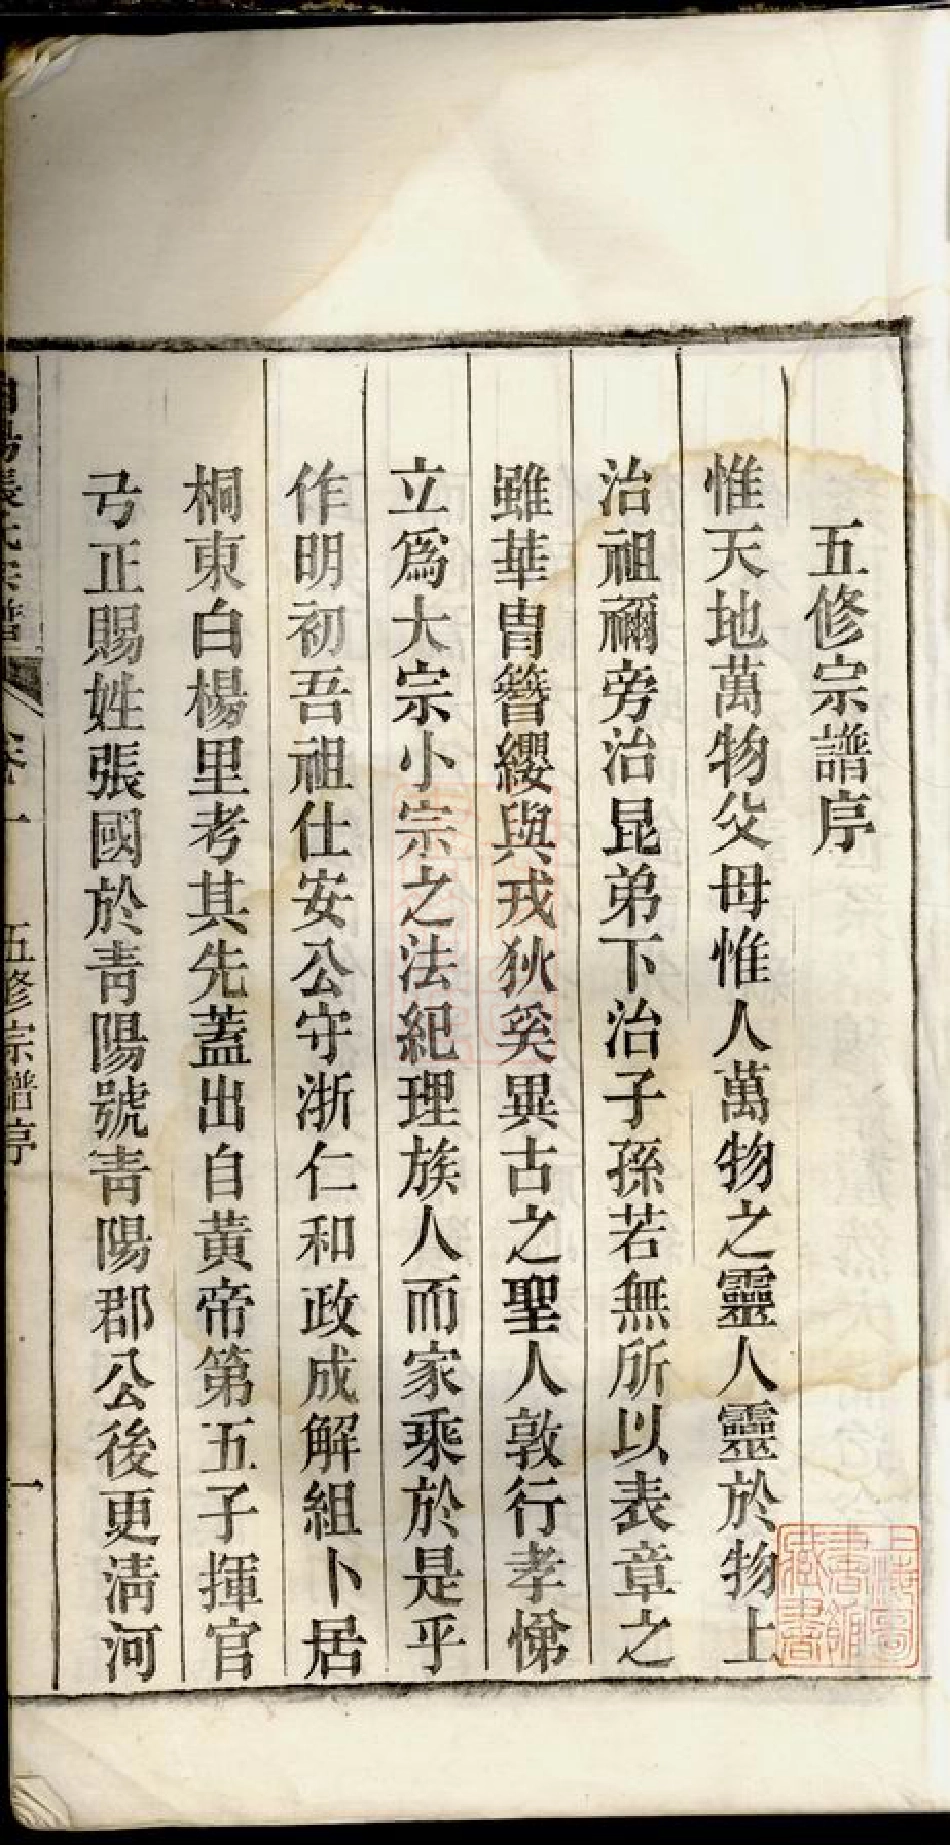 五修宗譜序
惟天地萬物父母惟人萬物之靈人靈於物上
治祖禰旁治昆弟下治子孫若無所以表章之
雖華胄簪纓與戎狄奚異古之聖人敦行孝悌
立爲大宗小宗之法紀理族人而家乘於是乎
作明初吾祖仕安公守浙仁和政成解組卜居
桐東白楊里考其先蓋出自黃帝第五子揮官
弓正賜姓張國於靑陽號靑陽郡公後更淸河
張氏宗譜 卷一 五修宗譜序 一
上海圖書館藏書